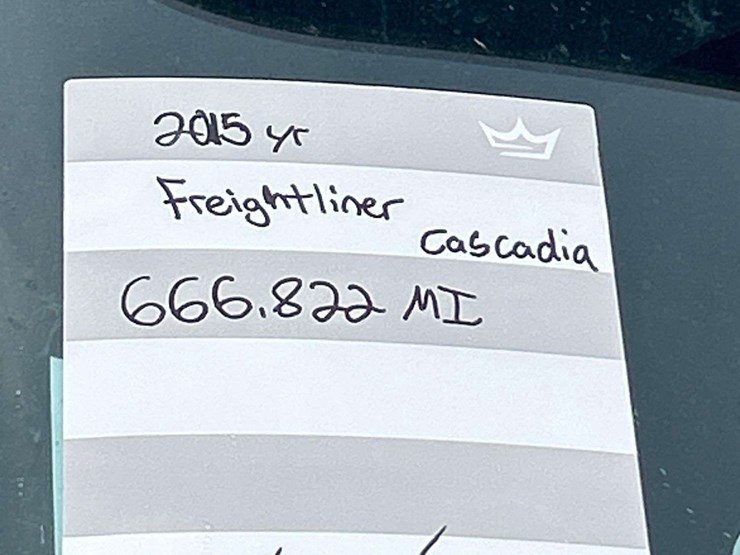 2015 yr
Freightliner
Cascadia
666.822 MI